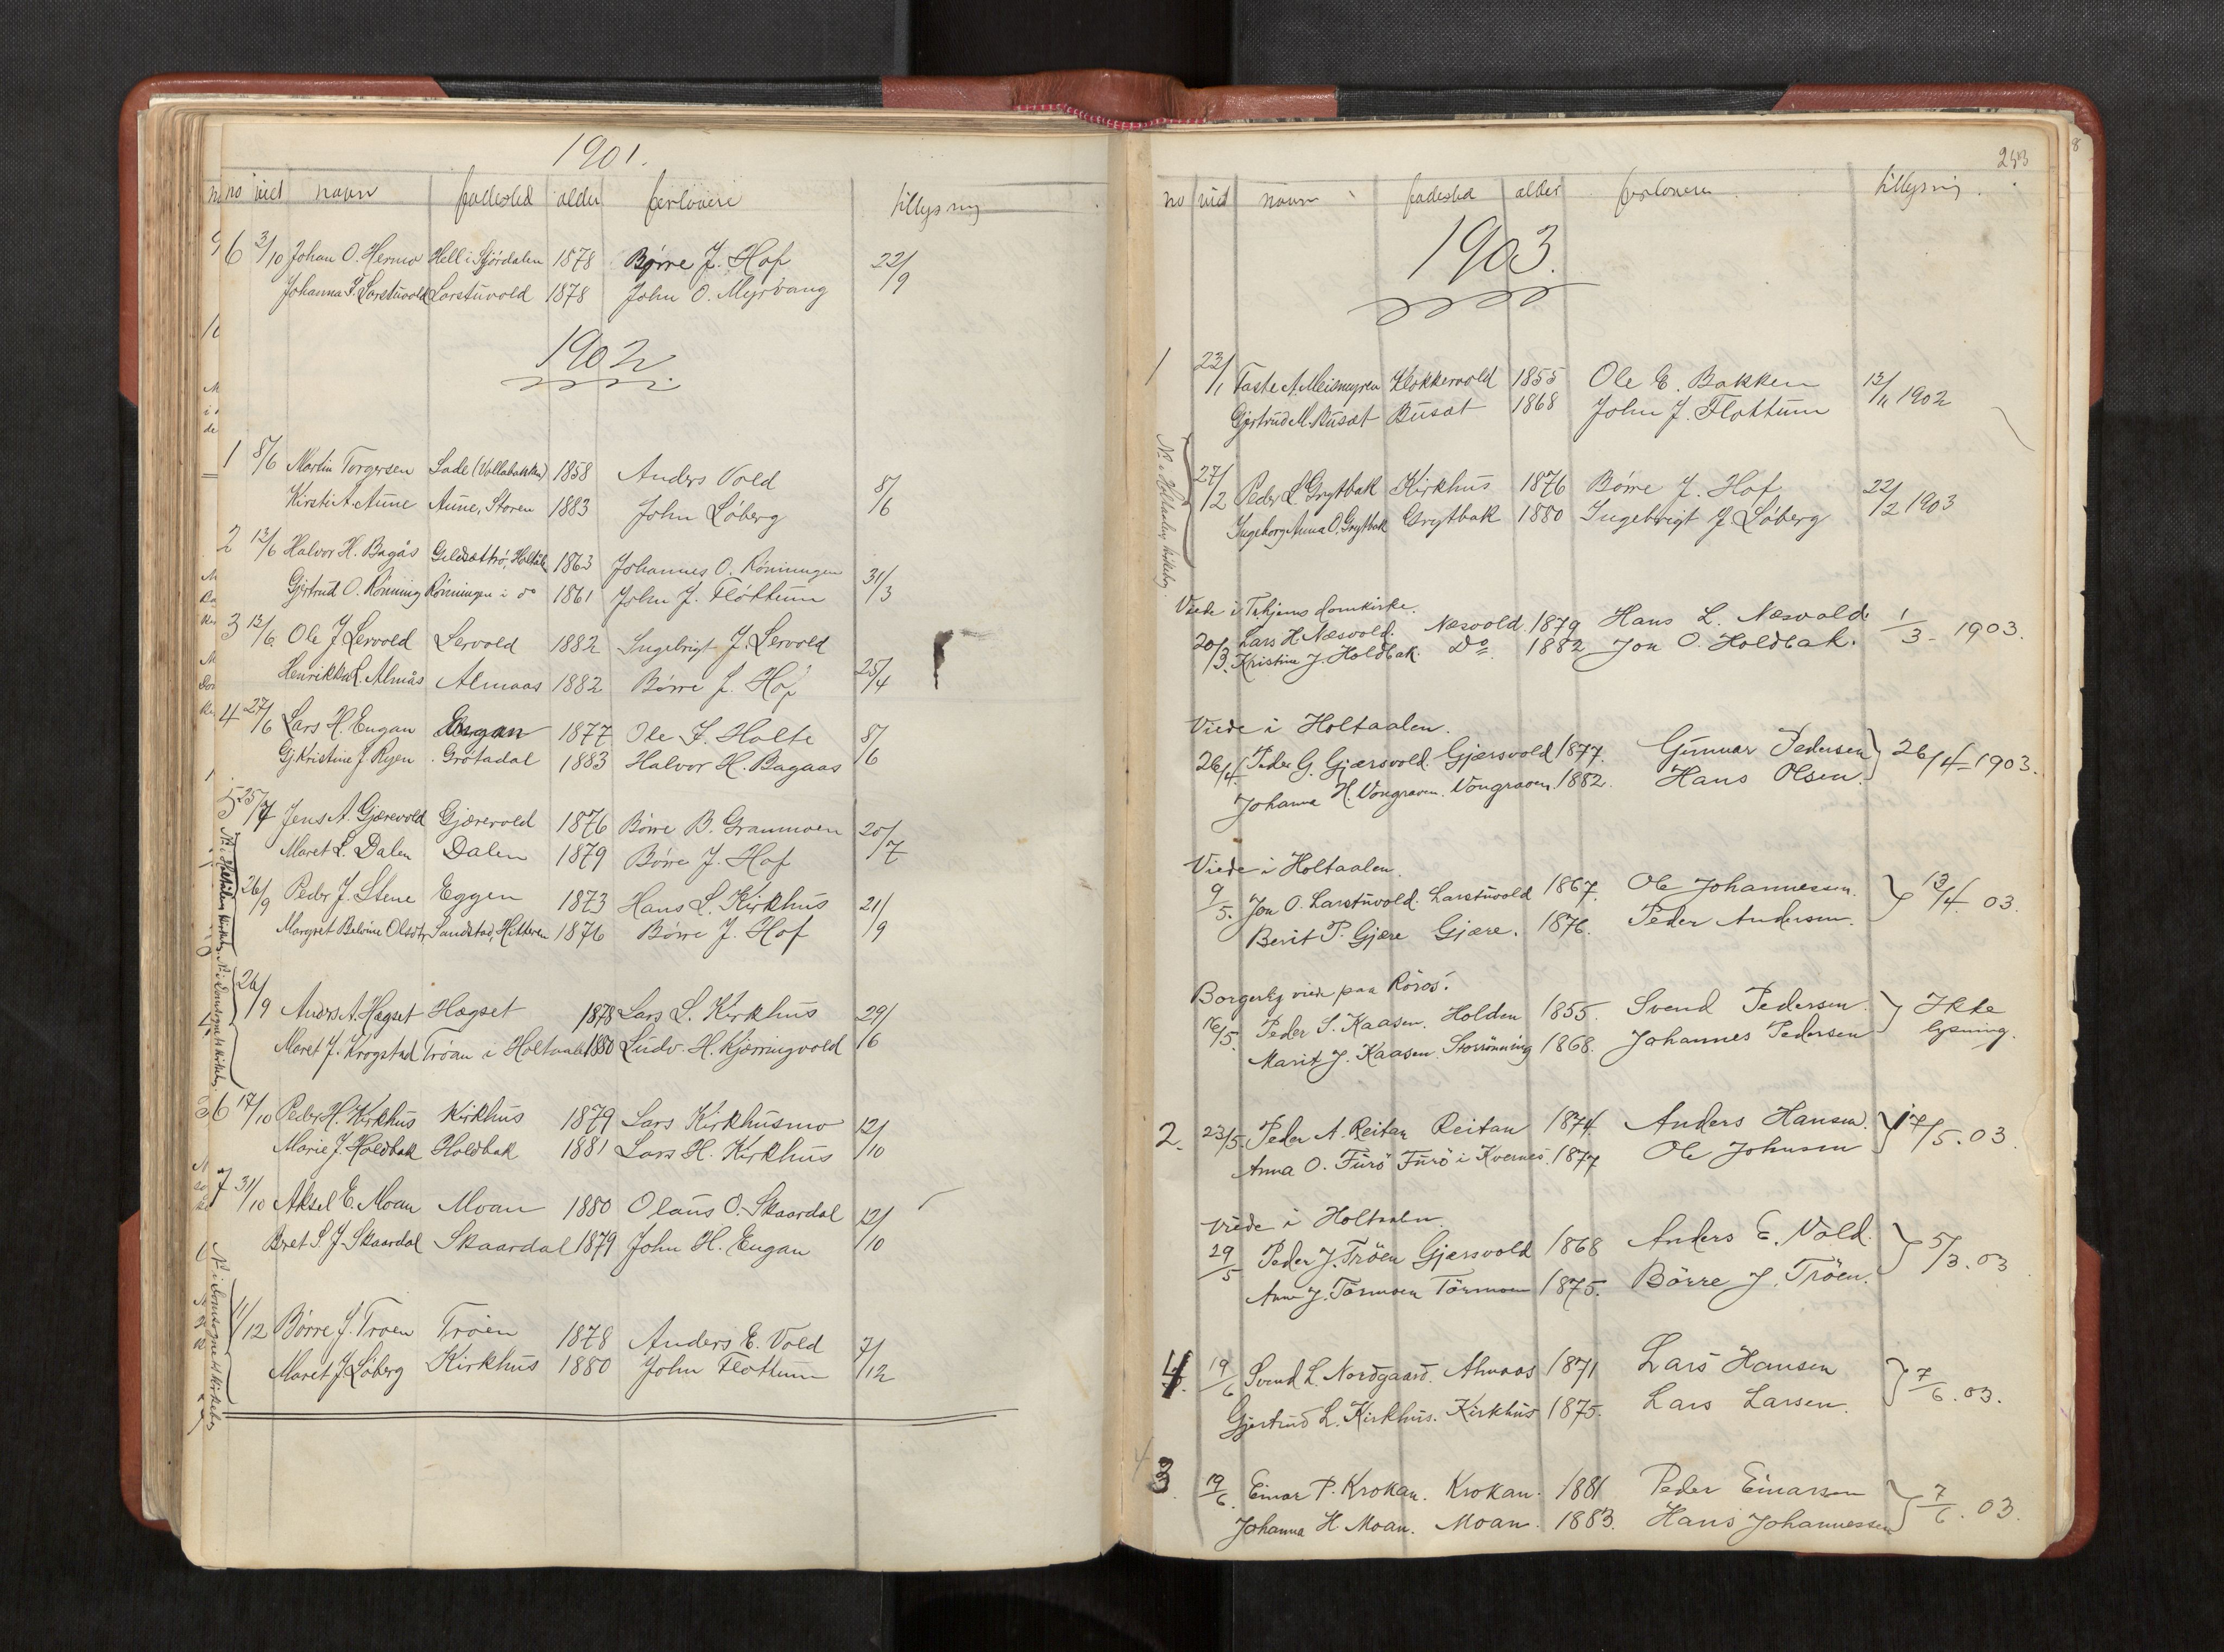 1901.
no viet navn fødested alder forlovere tillysning
6 3/10 Johan O. Hermo Hell i Stjørdalen 1878 Børre J. Hof 22/9
Johanna P. Larstuvold Larstuvold 1878 John O. Myrvang
1902
1 8/6 Martin Torgersen Lade (Vollabakken) 1858 Anders Vold 8/6
Kirsti A. Aune Aune, Støren 1883 John Løberg
2 13/6 Halvor H. Bagås Holtål 1863 Johannes O. Rønningen 31/3
Gjertrud O. Rønning Rønningen i do 1861 John J. Fløttum
3 13/6 Ole J Lervold Lervold 1882 Ingebrigt J. Lervold 25/4
Henrikka L. Almås Almaas 1882 Børre J. Hof
4 27/6 Lars H. Engan Engan 1877 Ole J. Holte 8/6
Gj. Kristine J Ryen Grøtadal 1883 Halvor H. Bagaas
5 25/7 Jens A. Gjærevold Gjærevold 1876 Børre B. Granmoen 20/7
Maret L. Dalen Dalen 1879 Børre J. Hof
26/9 Peder J. Stene Eggen 1873 Hans L. Kirkhus 21/9
Margret Belvine Olsdtr Sandstad, Hitteren 1876 Børre J. Hof
26/9 Anders A. Hægset Hægset 1878 Lars L. Kirkhus 29/6
Maret J. Krogstad Trøan i Holtaal 1880 Ludv. H. Kjerringvold
6 17/10 Peder H. Kirkhus Kirkhus 1879 Lars Kirkhusmo 12/10
Marie J. Holdbak Holdbak 1881 Lars H. Kirkhus
7 31/10 Aksel E. Moan Moan 1880 Olaus O. Skaardal 12/10
Beret S. J. Skaardal Skaardal 1879 John H. Engan
11/12 Børre J. Trøen Trøen 1878 Anders E. Vold 7/12
Maret J Løberg Kirkhus 1880 John Fløttum
243
no viet navn fødested alder forlovere tillysning.
1903.
1 23/1 Faste A. Meismyren Klokkervold 1855 Ole E. Bakken 13/11 1902
Gjertrud M. Busæt Busæt 1868 John J. Fløttum
27/2 Peder L Grytbak Kirkhus 1876 Børre J. Hof 22/2 1903
Ingeborg Anna O. Grytbak Grytbak 1880 Ingebrigt J Løberg
Viede i Trhjems domkirke.
20/3. Lars H. Næsvold. Næsvold. 1879 Hans L. Næsvold. 1/3 - 1903.
Kristine J. Holdbak. Do 1882 Jon O. Holdbak.
Viede i Holtaalen.
26/4. Peder G. Gjærsvold. Gjærsvold 1877. Gunnar Pedersen 26/4 - 1903.
Johanna H. Vongraven. Vongraven. 1882. Hans Olsen.
Viede i Holtaalen.
9/5. Jon O. Larstuvold. Larstuvold 1867. Ole Johannessen. 13/4. 03.
Berit P. Gjære Gjære. 1876. Peder Andersen.
Borgerlig viede paa Røros.
16/5. Peder S. Kaasen. Holden 1855. Svend Pedersen. Ikke
Marit J. Kaasen. Storrønning 1868. Johannes Pedersen lysning.
2. 23/5. Peder A. Reitan Reitan 1874. Anders Hansen. 17/5. 03.
Anna O. Furø Furø i Kvernes. 1877 Ole Johnsen
Viede i Holtaalen.
29/5 Peder J. Trøen Gjærsvold 1868 Anders E. Vold. 5/3. 03
Anne J. Tørmoen Tørmoen 1875. Børre J. Trøen.
4. 19/6 Svend L. Nordgaard. Almaas 1871 Lars Hansen 7/6. 03.
Gjertrud L. Kirkhus. Kirkhus 1875. Lars Larsen.
3 19/6. Einar P. Krokan. Krokan. 1881 Peder Einarsen 7/6. 03.
Johanna H. Moan. Moan. 1883. Hans Johannessen